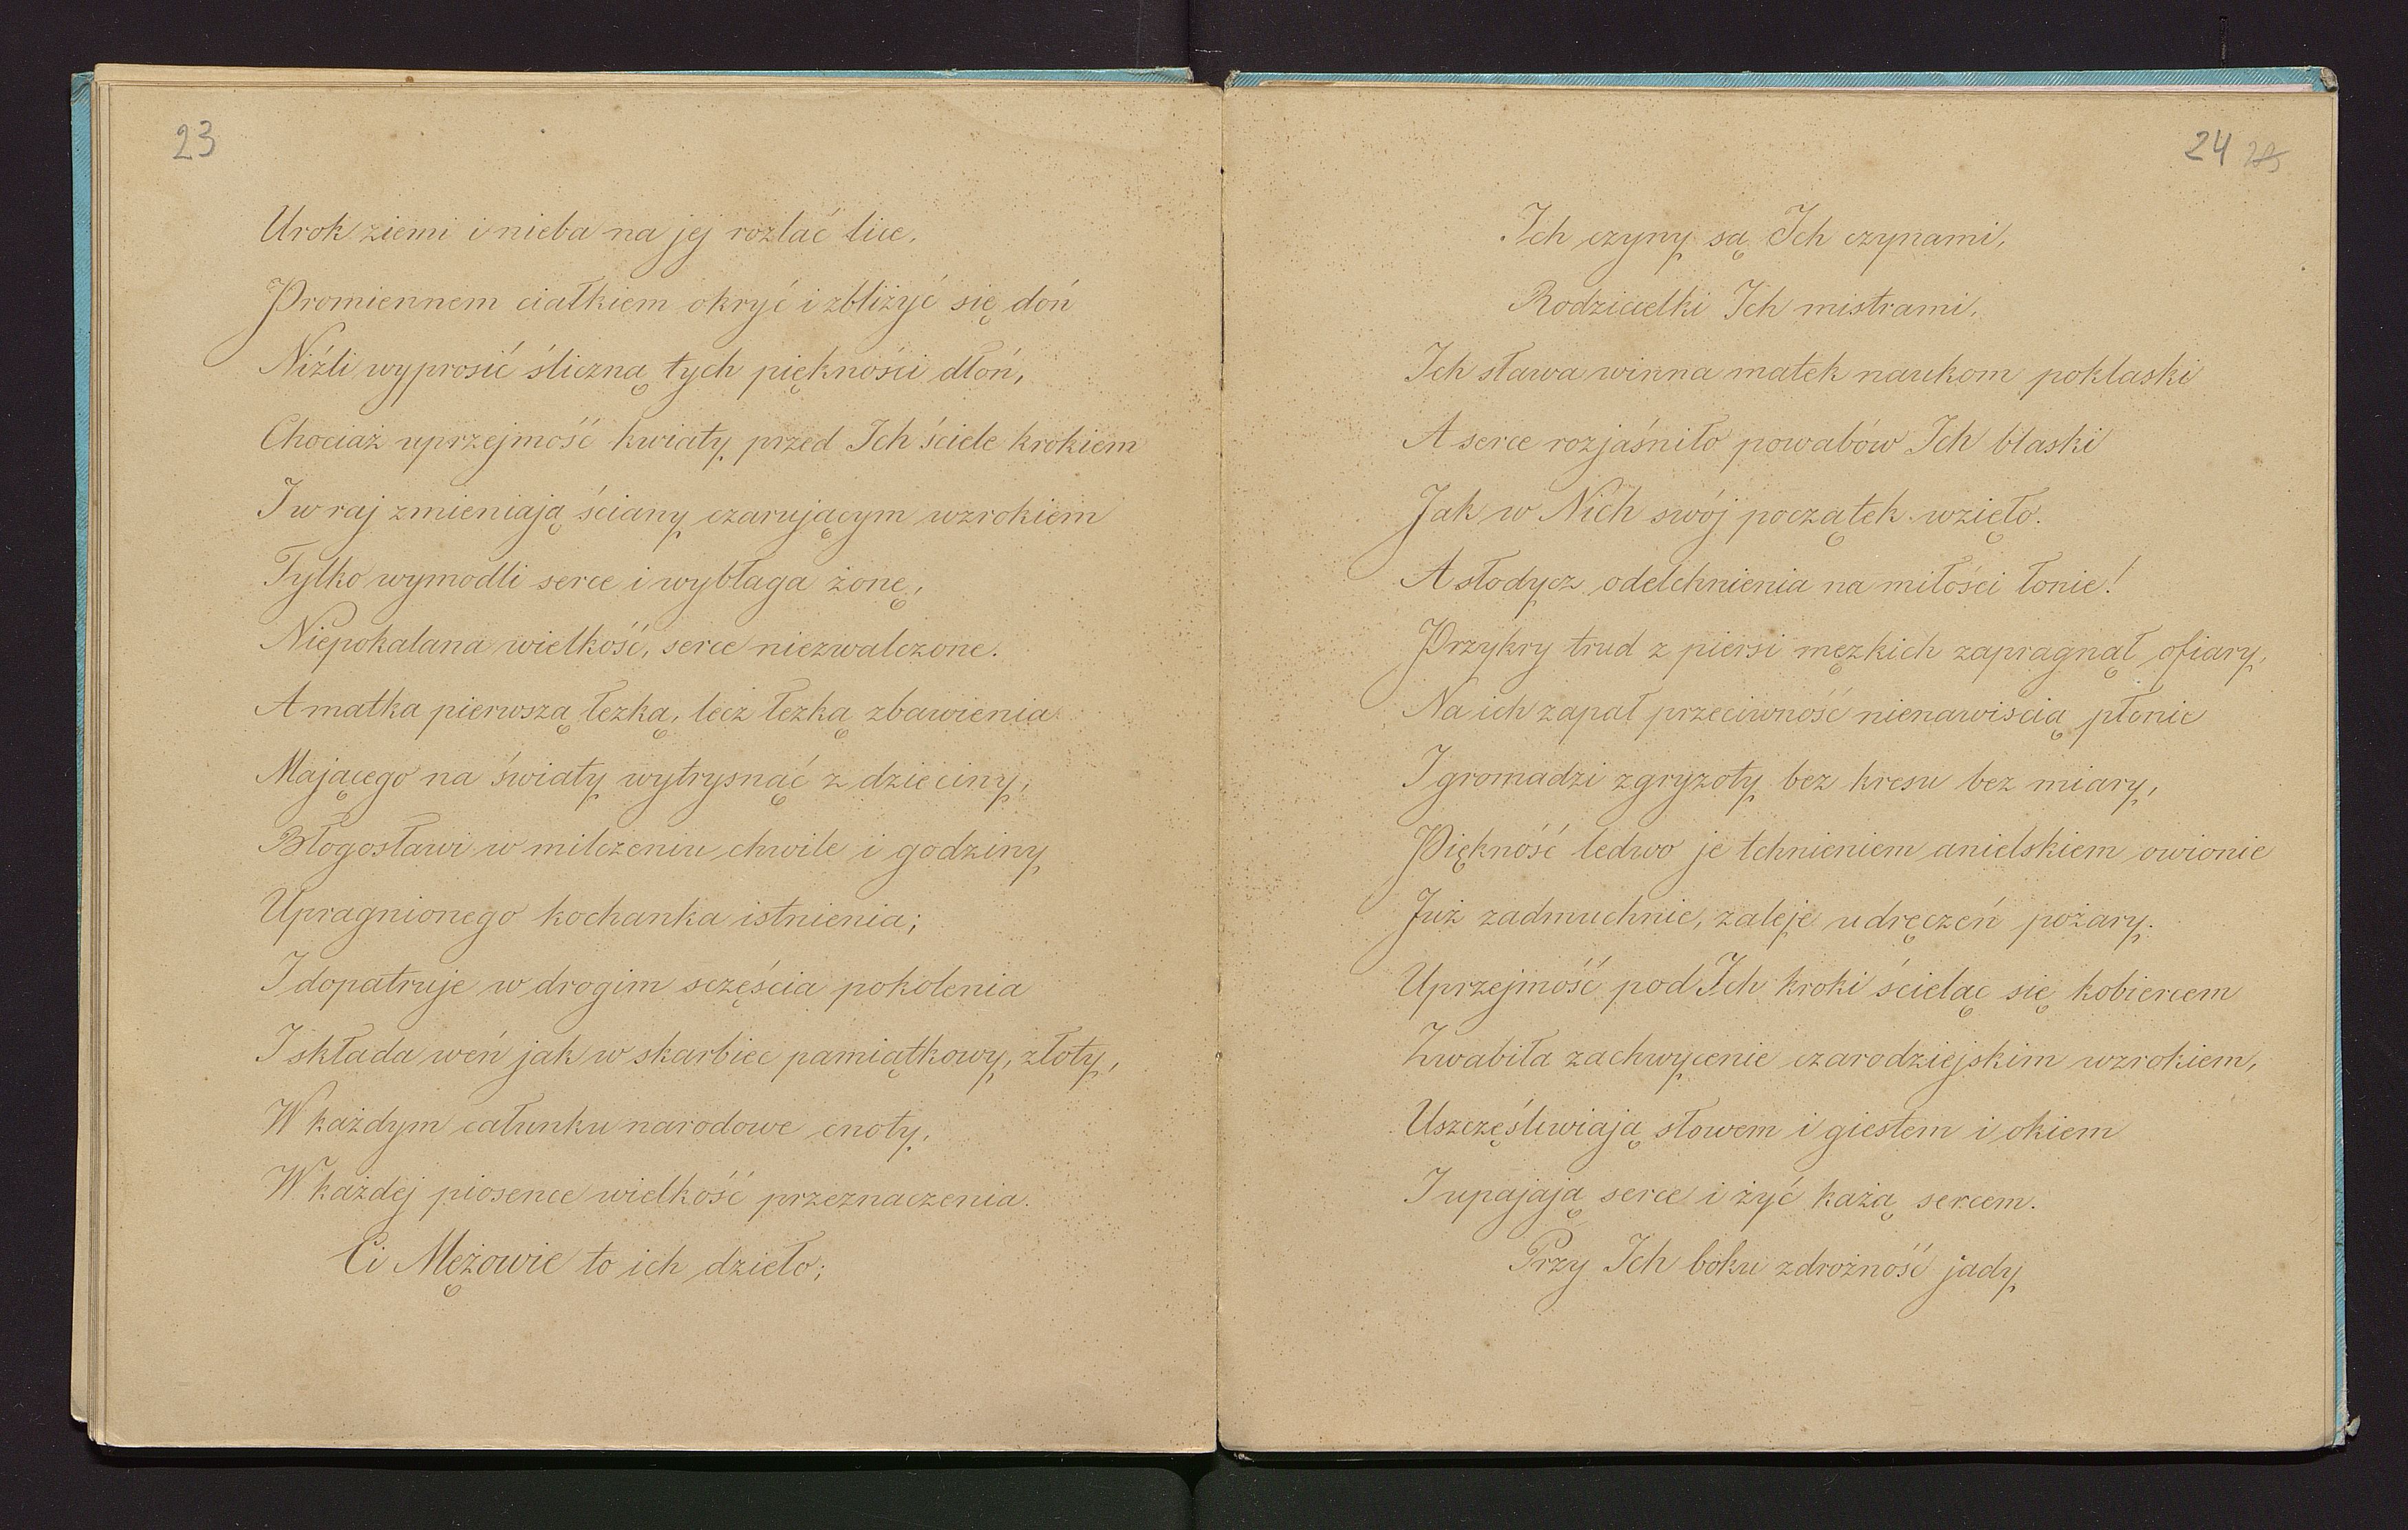 23
Urok ziemi i nieba na jej rozlać lice,
Promiennem ciałkiem okryć i zbliżyć się doń
Niźli wyprosić śliczną tych piękności dłoń,
Chociaż uprzejmość kwiaty przed Ich ściele krokiem
I w raj zmieniają ściany czarującym wzrokiem
Tylko wymodli serce i wybłaga żonę,
Niepokalana wielkość, serce niezwalczone.
A matka pierwszą łezką, lecz łezką zbawienia
Mającego na światy wytrysnąć z dzieciny,
Błogosławi w milczeniu chwile i godziny
Upragnionego kochanka istnienia;
I dopatruje w drogim sczęścia pokolenia
I składa weń jak w skarbiec pamiątkowy, złoty,
W każdym całunku narodowe cnoty,
W każdej piosence wielkość przeznaczenia.
Ci Mężowie to ich dzieło;
24 25
Ich czyny są Ich czynami,
Rodzicielki Ich mistrami,
Ich sława winna matek naukom poklaski
A serce rozjaśniło powabów Ich blaski
Jak w Nich swój początek wzięło.
A słodycz odetchnienia na miłości łonie!
Przykry trud z piersi męzkich zapragnął ofiary,
Na ich zapał przeciwność nienawiścią płonie
I gromadzi zgryzoty bez kresu bez miary,
Piękność ledwo je tchnieniem anielskiem owionie
Już zadmuchnie, zaleje udręczeń pożary.
Uprzejmość pod Ich kroki ścieląc się kobiercem
Zwabiła zachwycenie czarodziejskim wzrokiem,
Uszczęśliwiają słowem i giestem i okiem
I upajają serce i żyć każą sercem.
Przy Ich boku zdrożność jady